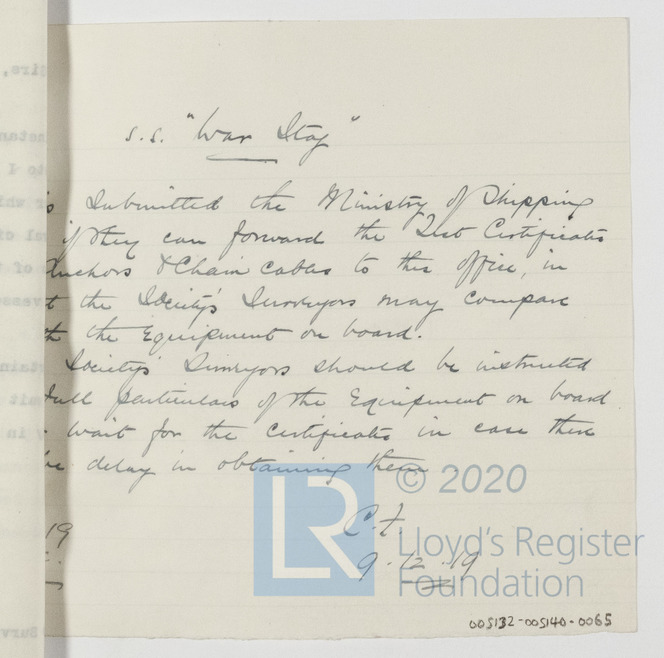 S.S. "War Stag"
is submitted the Ministry of Shipping
if they can forward the Test Certificates
Anchors & Chain cables to this office, in
the Society's Surveyors may compare
the Equipment on board.
Society's Surveyors should be instructed
full particulars of the Equipment on board
wait for the certificates in case there
be delay in obtaining them
C.F.
19
9.12.19
LR
© 2020
Lloyd's Register
Foundation
005132-005140-0065